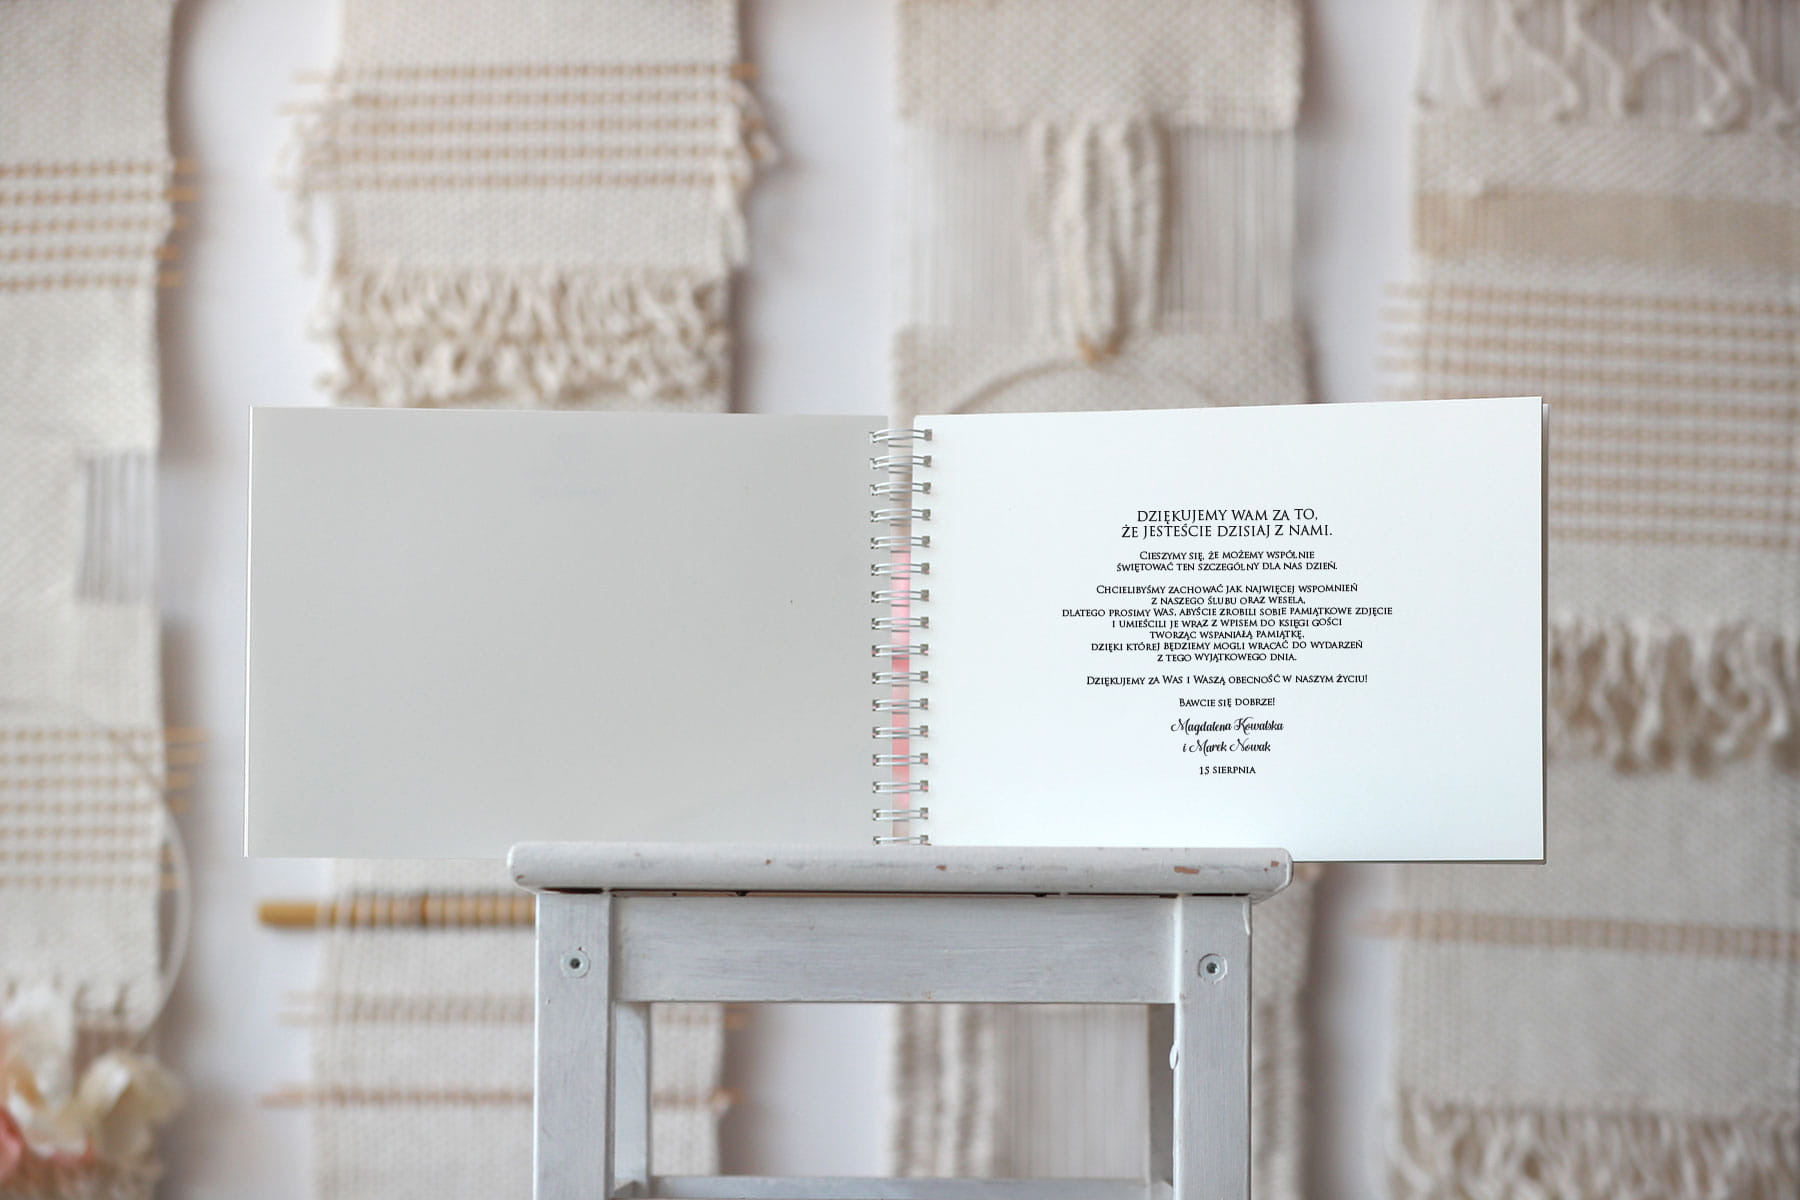 DZIĘKUJEMY WAM ZA TO,
ŻE JESTEŚCIE DZISIAJ Z NAMI.
Cieszymy się, że możemy wspólnie
świętować ten szczególny dla nas dzień.
Chcielibyśmy zachować jak najwięcej wspomnień
z naszego ślubu oraz wesela,
dlatego prosimy Was, abyście zrobili sobie pamiątkowe zdjęcie
i umieścili je wraz z wpisem do księgi gości
tworząc wspaniałą pamiątkę,
dzięki której będziemy mogli wracać do wydarzeń
z tego wyjątkowego dnia.
Dziękujemy za Was i Waszą obecność w naszym życiu!
Bawcie się dobrze!
Magdalena Kowalska
i Marek Nowak
15 sierpnia